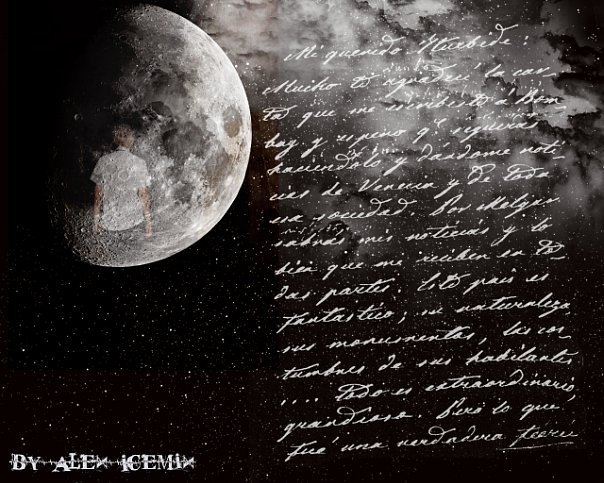 Mi querido Iturbide:
Mucho te agradecí la car-
ta que me escribiste á Bom-
bay y espero qe. seguirás
haciéndolo y dándome noti-
cias de Venecia y de toda
esa sociedad. Por Melgar
sabrás mis noticias y lo
bien que me reciben en to-
das partes. Este país es
fantastico; su naturaleza,
sus monumentos, las cos-
tumbres de sus habitantes
.... todo es extraordinario,
grandioso. Pero lo que
fué una verdadera
BY ALEX ICEMIX